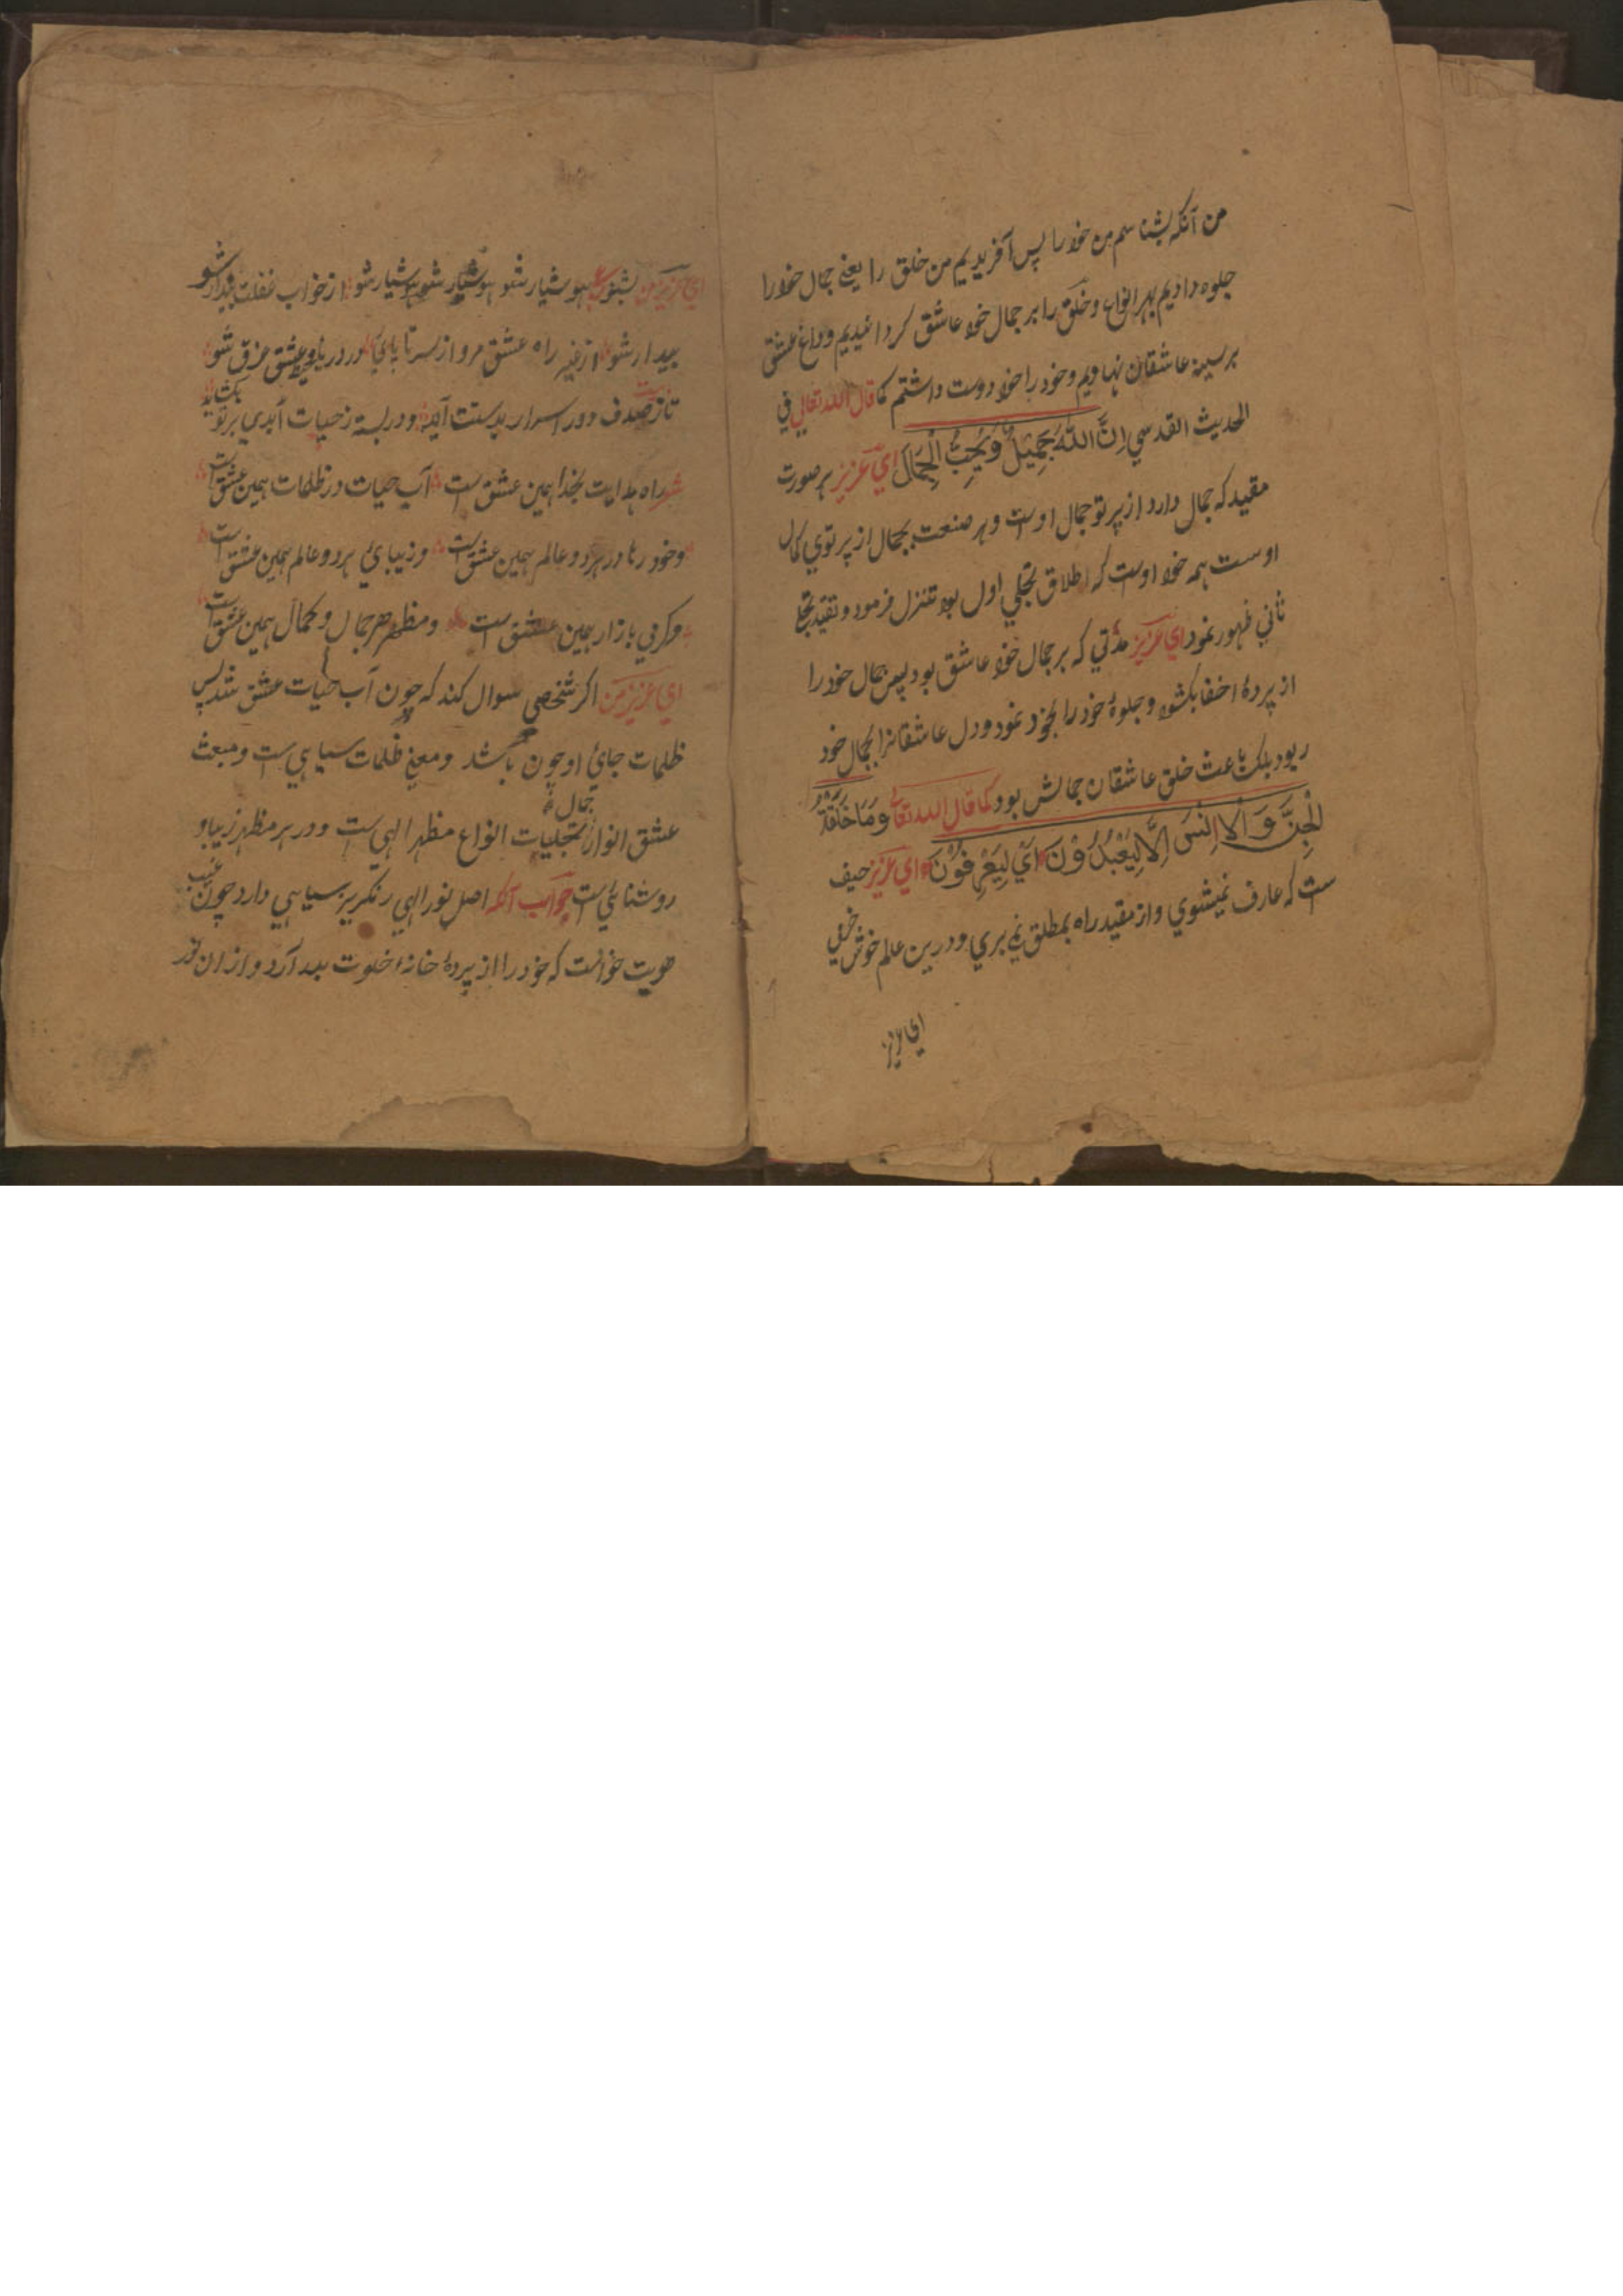 من آنکه بشناسم من خود را پس آفریدیم من خلق را یعنے جمال خود را
جلوه دادیم بهر انواع و خلق را بر جمال خود عاشق کردانیدیم و داغ عشق
بر سینهٔ عاشقان نهادیم و خود را خود دوست داشتم کما قال الله تعالی في
الحدیث القدسي اِنَّ اللّٰهَ جَمِیْلٌ وَّیُحِبُّ الْجَمَالَ اي عزیز هر صورت
مقید که جمال دارد از پرتو جمال اوست و هر صنعت بجمال از پرتوي کمال
اوست همه خود اوست که اطلاق تجلي اول بود تنزل فرمود و تقید تجلي
ثاني ظهور نمود اي عزیز مدّتي که بر جمال خود عاشق بود پس جمال خود را
از پردهٔ اخفا بکشود و جلوهٔ خود را بخود نمود و دل عاشقانرا بجمال خود
ربود بلک باعث خلق عاشقان جمالش بود کما قال الله تعالی وَمَا خَلَقْتُ
الْجِنَّ وَ الْاِنْسَ اِلَّا لِیَعْبُدُوْنَ اَيْ لِیَعْرِفُوْنَ اي عزیز حیف
ست که عارف نمیشوي و از مقید راه بمطلق نمي بري و درین عالم خوش خرمي
اي عزیز
اي عزیز من بشنو ع هوشیار شو هوشیار شو هوشیار شو از خواب غفلت بیدار شو
بیدار شو از غیر راه عشق مرو از سر تا بپاي در دریاي محیط عشق غرق شو
تا از صدف دور اسرار بدستت آید و در بسته ز حیات ابدي بر تو بکشاید
شد راه هدایت بخدا همین عشق ست آب حیات در ظلمات همین عشق ست
و خود رنا در هر دو عالم همین عشق ست و زیبائي هر دو عالم همین عشق ست
و کرمي بازار همین عشق ست و مظهر هر جمال و کمال همین عشق ست
اي عزیز من اکر شخصي سوال کند که چون آب حیات عشق شد پس
ظلمات جائ او چون باشد و معنے ظلمات سیاهي ست و مبعث
عشق انوار تجلیات جمال انواع مظهر الهي ست و در هر مظهر زیبا و
روشنائي ست جواب آنکه اصل نور الهي رنکریز سیاهي دارد چون غیب
هویت خواست که خود را از پردهٔ خانهٔ خلوت بدر آرد و ازان نور